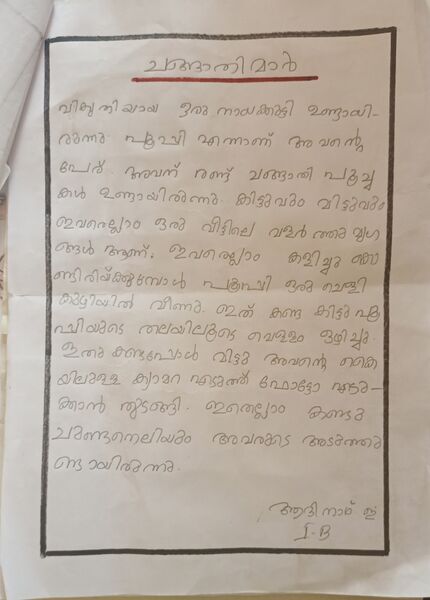 ചങ്ങാതിമാർ
വികൃതിയായ ഒരു നായക്കുട്ടി ഉണ്ടായി-
രുന്നു. പപ്പി എന്നാണ് അവന്റെ
പേര്. അവന് രണ്ട് ചങ്ങാതി പൂച്ച
കൾ ഉണ്ടായിരുന്നു. കിട്ടുവും വിട്ടുവും
ഇവരെല്ലാം ഒരു വീട്ടിലെ വളർത്തു മൃഗ
ങ്ങൾ ആണ്. ഇവരെല്ലാം കളിച്ചു കൊ
ണ്ടിരിയ്ക്കുമ്പോൾ പപ്പി ഒരു ചെളി
കുഴിയിൽ വീണു. ഇത് കണ്ട കിട്ടു പപ്പ
പ്പിയുടെ തലയിലൂടെ വെള്ളം ഒഴിച്ചു.
ഇതു കണ്ടപ്പോൾ വിട്ടു അവന്റെ കൈ
യിലുള്ള ക്യാമറ എടുത്ത് ഫോട്ടോ എടു-
ക്കാൻ തുടങ്ങി. ഇതെല്ലാം കണ്ടു
ചുണ്ടനെലിയും അവരുടെ അടുത്തു
ണ്ടായിരുന്നു.
ആദിനാഥ് ഇ
I-B